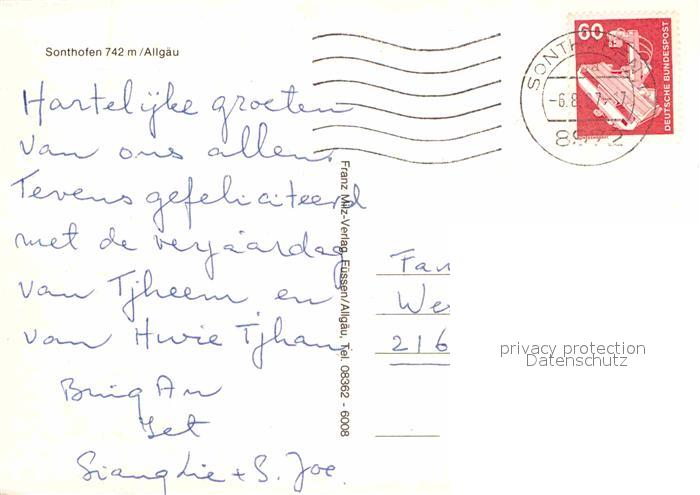 Sonthofen 742 m/Allgäu
60
DEUTSCHE BUNDESPOST
SONTH
-6.8.
8972
Hartelijke groeten
van ons allen.
Tevens gefeliciteerd
met de verjaardag
van Tjheem en
van Hwie Tjhan
Bing An
Jet
Siang Lie + S. Joe.
Franz Milz-Verlag, Füssen/Allgäu, Tel. 08362 - 6008
Fam
We
216
privacy protection
Datenschutz